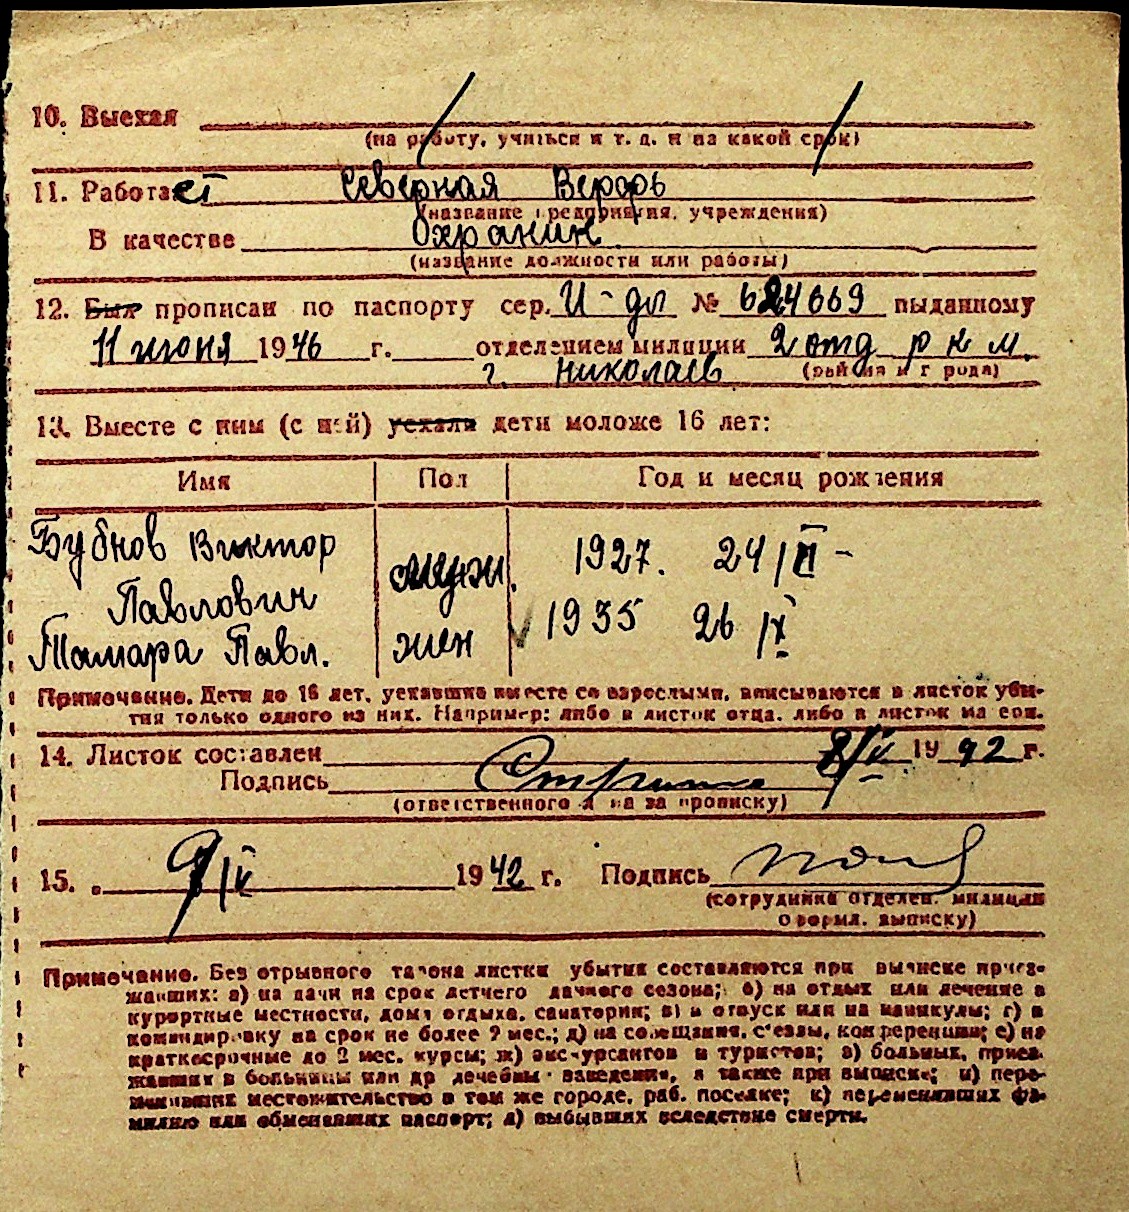 10. Выехал
(на работу, учиться и т. д. и на какой срок)
11. Работает Северная Верфь
(название предприятия, учреждения)
В качестве Охраник
(название должности или работы)
12. Был прописан по паспорту сер. И-дл № 624669 выданному
11 июня 1946 г. отделением милиции 2 отд р к м.
г. николаев (района и города)
13. Вместе с ним (с ней) уехали дети моложе 16 лет:
Имя Пол Год и месяц рождения
Бубнов Виктор
Павлович муж. 1927. 24/II-
Тамара Павл. жен 1935 26 IX
Примечание. Дети до 16 лет, уехавшие вместе со взрослыми, вписываются в листок убы-
тия только одного из них. Например: либо в листок отца, либо в листок матери.
14. Листок составлен 8/IV 1942 г.
Подпись
(ответственного лица за прописку)
15. 9/IV 1942 г. Подпись
(сотрудника отделен. милиции
оформл. выписку)
Примечание. Без отрывного талона листки убытия составляются при выписке приез-
жавших: а) на дачи на срок летнего дачного сезона; б) на отдых или лечение в
курортные местности, дома отдыха, санатории; в) в отпуск или на каникулы; г) в
командировку на срок не более 2 мес.; д) на совещания, съезды, конференции; е) на
краткосрочные до 2 мес. курсы; ж) экскурсантов и туристов; з) больных, приез-
жавших в больницы или др лечебны заведения, а также при выписке; и) пере-
менивших местожительство в том же городе, раб. поселке; к) переменивших фа-
милию или обменявших паспорт; л) выбывших вследствие смерти.